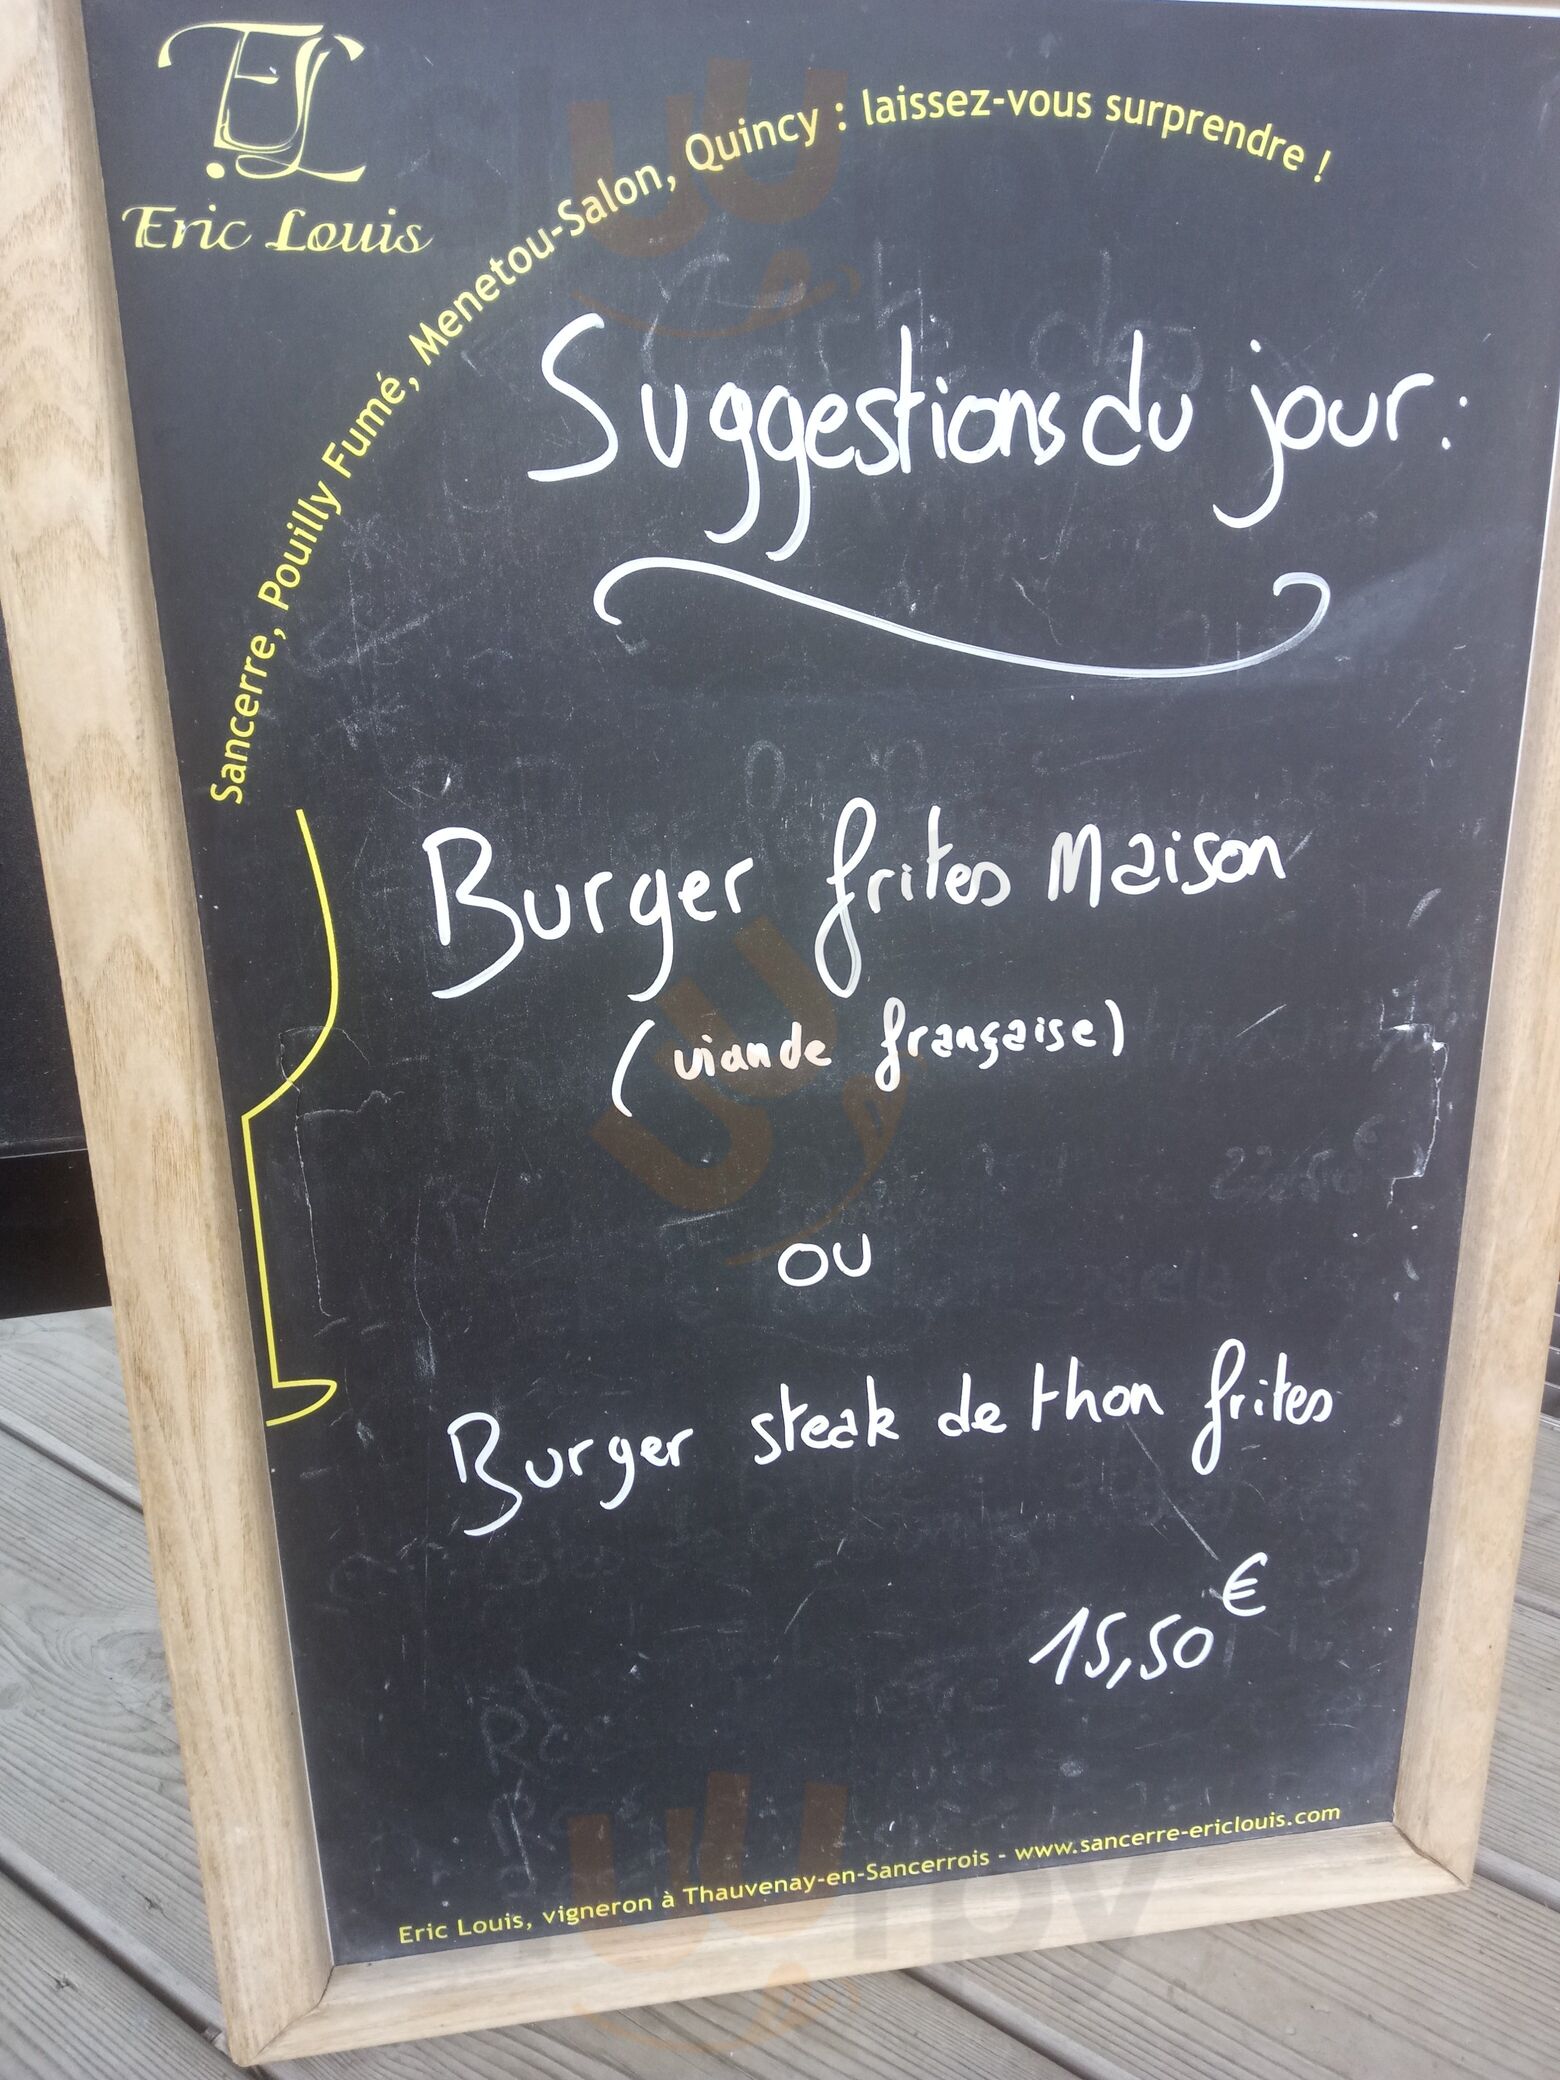 Eric Louis
Sancerre, Pouilly Fumé, Menetou-Salon, Quincy : laissez-vous surprendre !
Suggestions du jour :
Burger frites Maison
(viande française)
ou
Burger steak de thon frites
15,50€
Eric Louis, vigneron à Thauvenay-en-Sancerrois - www.sancerre-ericlouis.com